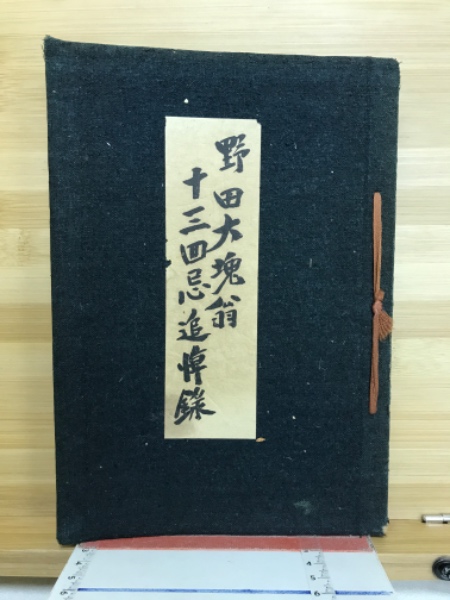 野田大塊翁
十三回忌追悼録